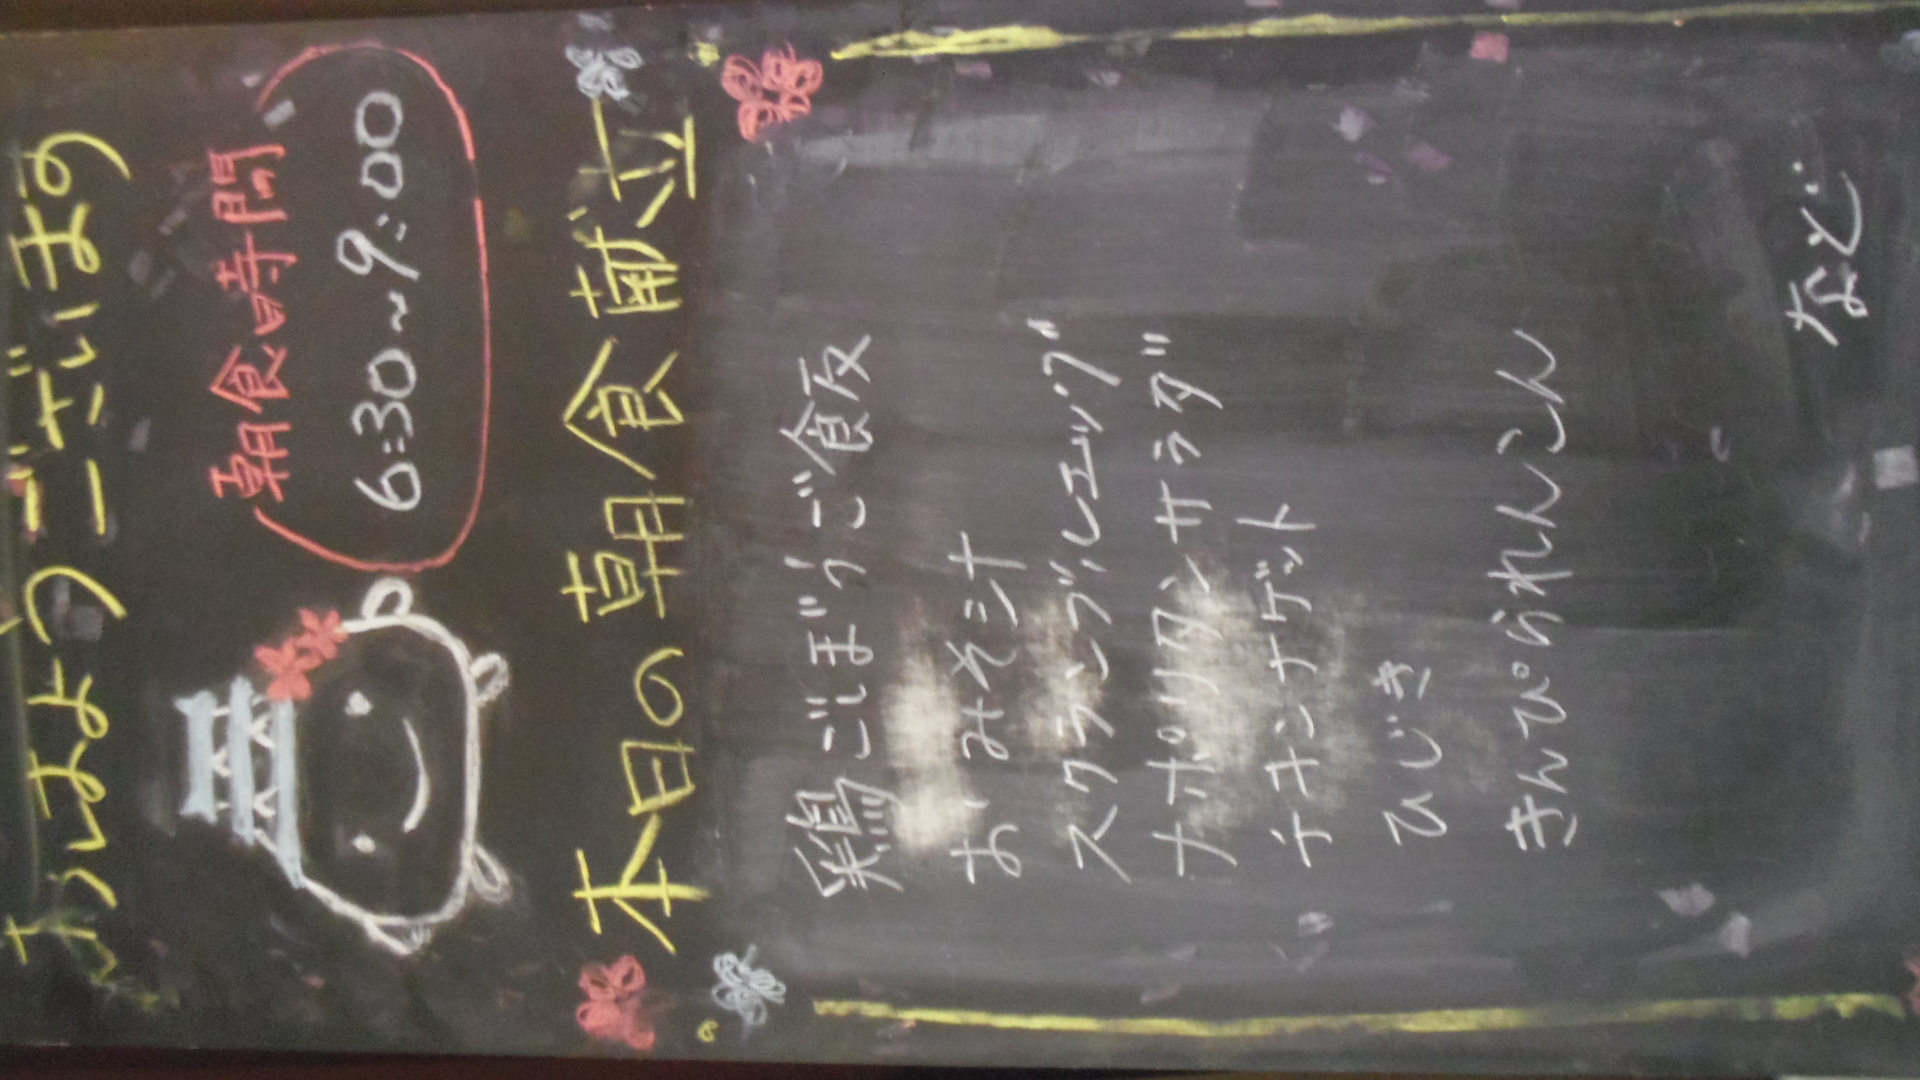 おはようございます
朝食時間
6:30~9:00
本日の朝食献立
鶏ごぼうご飯
おみそ汁
スクランブルエッグ
ナポリタンサラダ
チキンナゲット
ひじき
きんぴられんこん
など…